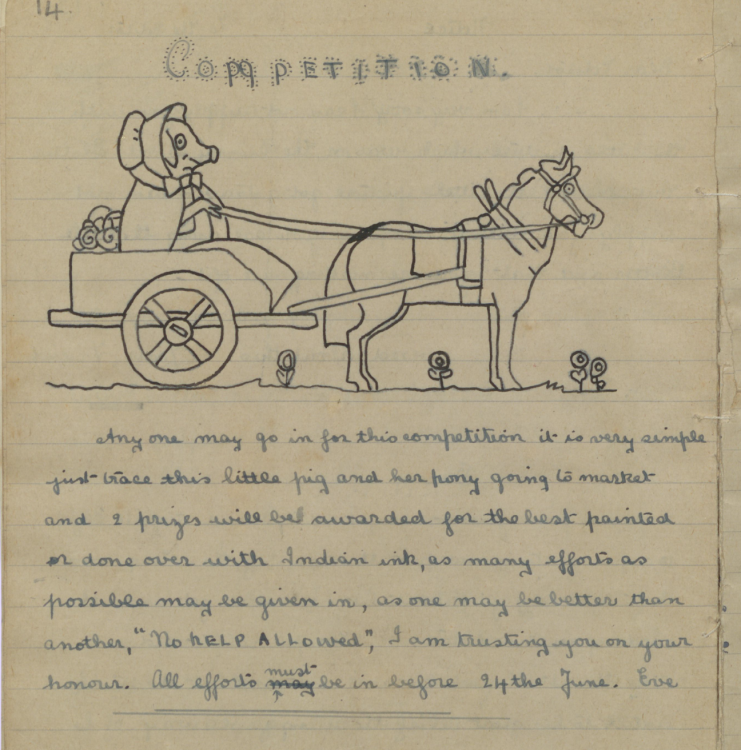 14.
COMPETITION.
Any one may go in for this competition it is very simple
just trace this little pig and her pony going to market
and 2 prizes will be awarded for the best painted
or done over with Indian ink, as many efforts as
possible may be given in, as one may be better than
another, "No HELP ALLOWED", I am trusting you on your
honour. All efforts must may be in before 24 the June. Eve